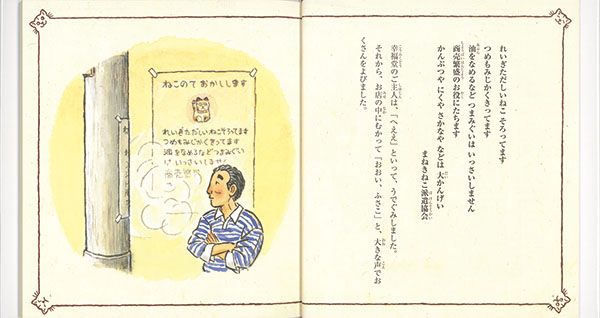 ねこのて おかしします
れいぎただしいねこそろってます
つめもみじかくきってます
油をなめるなどつまみぐい
は いっさいしません
商売繁
れいぎただしいねこ そろってます
つめもみじかくきってます
油をなめるなど つまみぐいは いっさいしません
商売繁盛のお役にたちます
かんぶつや にくや さかなや などは 大かんげい
まねきねこ派遣協会
幸福堂のご主人は、「へええ」といって、うでぐみしました。
それから、お店の中にむかって「おおい、ふさこ」と、大きな声でお
くさんをよびました。